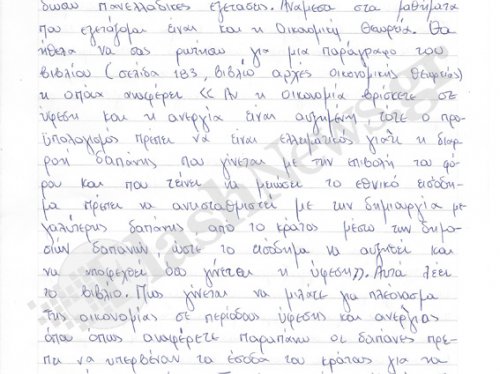 δωσω πανελλαδικες εξετασεις. Αναμεσα στα μαθηματα
που εξεταζομαι ειναι και η Οικονομικη Θεωρεια. Θα
ηθελα να σας ρωτησω για μια παραγραφο του
βιβλιου (σελιδα 183, βιβλιο αρχες οικονομικης θεωρειας)
η οποια αναφερει << Αν η οικονομια βρισκεται σε
υφεση και η ανεργια ειναι αυξημενη, τοτε ο προ-
ϋπολογισμος πρεπει να ειναι ελλειματικος γιατι η διαρ-
ροη δαπανης που γινεται με την επιβολη του φο-
ρου και που τεινει να μειωσει το εθνικο εισοδη-
μα πρεπει να αντισταθμιστει με την δημιουργια με-
γαλυτερης δαπανης απο το κρατος μεσω των δημο-
σιων δαπανων ωστε το εισοδημα να αυξηθει και
να υποφερθει οσο γινεται η υφεση>>. Αυτα λεει
το βιβλιο. Πως γινεται να μιλατε για πλεονασμα
της οικονομιας σε περιοδους υφεσης και ανεργιας
οπου οπως αναφερετε παραπανω οι δαπανες πρε-
πει να υπερβαινουν τα εσοδα του κρατους για να
FlashNews.gr